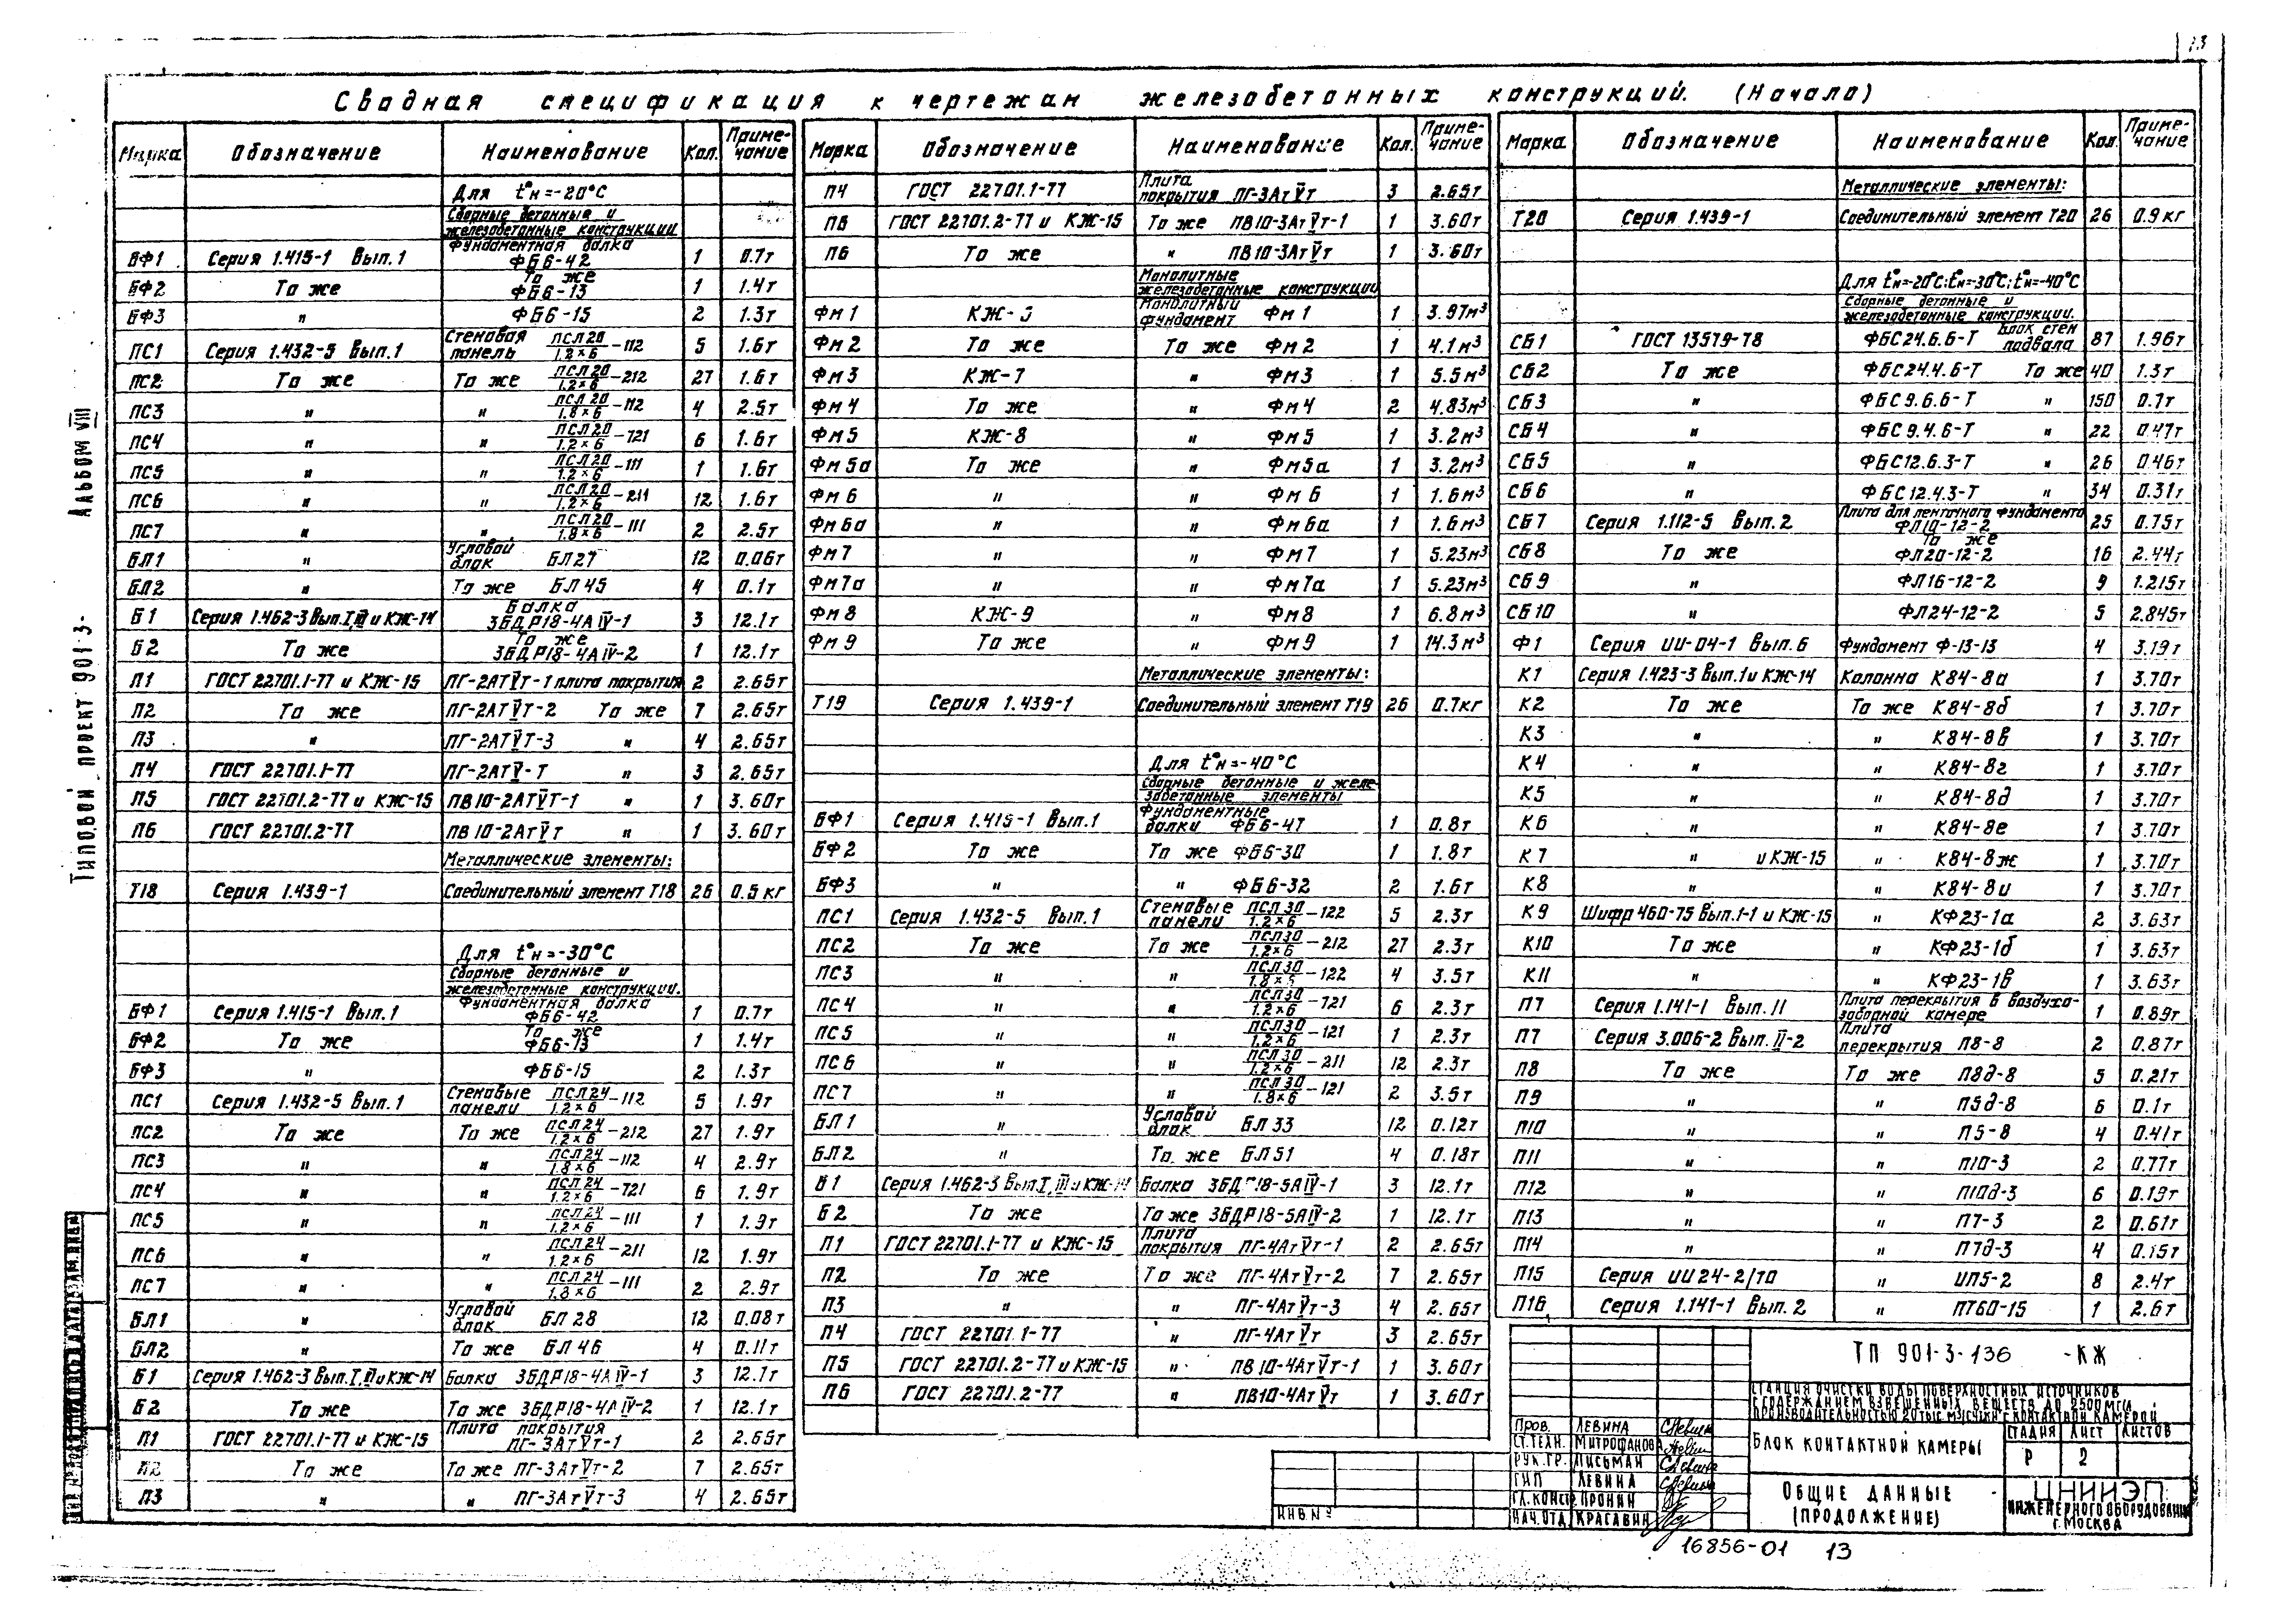 13
Сводная спецификация к чертежам железобетонных конструкций. (Начало)
Альбом VIII
Типовой проект 901-3-
Марка Обозначение Наименование Кол. Приме-
чание
Для t°н=-20°С
Сборные бетонные и
железобетонные конструкции
БФ1 Серия 1.415-1 Вып.1 Фундаментная балка ФБ6-42 1 0.7т
БФ2 То же То же ФБ6-13 1 1.4т
БФ3 " ФБ6-15 2 1.3т
ПС1 Серия 1.432-5 Вып.1 Стеновая панель ПСЛ20/1.2×6-112 5 1.6т
ПС2 То же То же ПСЛ20/1.2×6-212 27 1.6т
ПС3 " " ПСЛ20/1.8×6-112 4 2.5т
ПС4 " " ПСЛ20/1.2×6-721 6 1.6т
ПС5 " " ПСЛ20/1.2×6-111 1 1.6т
ПС6 " " ПСЛ20/1.2×6-211 12 1.6т
ПС7 " " ПСЛ20/1.8×6-111 2 2.5т
БЛ1 " Угловой блок БЛ27 12 0.06т
БЛ2 " То же БЛ45 4 0.1т
Б1 Серия 1.462-3 Вып.I,III и КЖ-14 Балка 3БДР18-4АIV-1 3 12.1т
Б2 То же То же 3БДР18-4АIV-2 1 12.1т
П1 ГОСТ 22701.1-77 и КЖ-15 ПГ-2АТVТ-1 плита покрытия 2 2.65т
П2 То же ПГ-2АТVТ-2 То же 7 2.65т
П3 " ПГ-2АТVТ-3 " 4 2.65т
П4 ГОСТ 22701.1-77 ПГ-2АТV-Т " 3 2.65т
П5 ГОСТ 22701.2-77 и КЖ-15 ПВ10-2АТVТ-1 " 1 3.60т
П6 ГОСТ 22701.2-77 ПВ10-2АтVт " 1 3.60т
Металлические элементы:
Т18 Серия 1.439-1 Соединительный элемент Т18 26 0.5кг
Для t°н=-30°С
Сборные бетонные и
железобетонные конструкции.
БФ1 Серия 1.415-1 Вып.1 Фундаментная балка ФБ6-42 1 0.7т
БФ2 То же То же ФБ6-13 1 1.4т
БФ3 " ФБ6-15 2 1.3т
ПС1 Серия 1.432-5 Вып.1 Стеновые панели ПСЛ24/1.2×6-112 5 1.9т
ПС2 То же То же ПСЛ24/1.2×6-212 27 1.9т
ПС3 " " ПСЛ24/1.8×6-112 4 2.9т
ПС4 " " ПСЛ24/1.2×6-721 6 1.9т
ПС5 " " ПСЛ24/1.2×6-111 1 1.9т
ПС6 " " ПСЛ24/1.2×6-211 12 1.9т
ПС7 " " ПСЛ24/1.8×6-111 2 2.9т
БЛ1 " Угловой блок БЛ28 12 0.08т
БЛ2 " То же БЛ46 4 0.11т
Б1 Серия 1.462-3 Вып.I,III и КЖ-14 Балка 3БДР18-4АIV-1 3 12.1т
Б2 То же То же 3БДР18-4АIV-2 1 12.1т
П1 ГОСТ 22701.1-77 и КЖ-15 Плита покрытия ПГ-3АтVт-1 2 2.65т
П2 То же То же ПГ-3АтVт-2 7 2.65т
П3 " " ПГ-3АтVт-3 4 2.65т
Марка Обозначение Наименование Кол. Приме-
чание
П4 ГОСТ 22701.1-77 Плита покрытия ПГ-3АтVт 3 2.65т
П5 ГОСТ 22701.2-77 и КЖ-15 То же ПВ10-3АтVт-1 1 3.60т
П6 То же " ПВ10-3АтVт 1 3.60т
Монолитные
железобетонные конструкции
Фм1 КЖ- Монолитный фундамент Фм1 1 3.97м³
Фм2 То же То же Фм2 1 4.1м³
Фм3 КЖ-7 " Фм3 1 5.5м³
Фм4 То же " Фм4 2 4.83м³
Фм5 КЖ-8 " Фм5 1 3.2м³
Фм5а То же " Фм5а 1 3.2м³
Фм6 " " Фм6 1 1.6м³
Фм6а " " Фм6а 1 1.6м³
Фм7 " " Фм7 1 5.23м³
Фм7а " " Фм7а 1 5.23м³
Фм8 КЖ-9 " Фм8 1 6.8м³
Фм9 То же " Фм9 1 14.3м³
Металлические элементы:
Т19 Серия 1.439-1 Соединительный элемент Т19 26 0.7кг
Для t°н=-40°С
Сборные бетонные и желе-
зобетонные элементы
БФ1 Серия 1.415-1 Вып.1 Фундаментные балки ФБ6-47 1 0.8т
БФ2 То же То же ФБ6-30 1 1.8т
БФ3 " " ФБ6-32 2 1.6т
ПС1 Серия 1.432-5 Вып.1 Стеновые панели ПСЛ30/1.2×6-122 5 2.3т
ПС2 То же То же ПСЛ30/1.2×6-212 27 2.3т
ПС3 " " ПСЛ30/1.8×6-122 4 3.5т
ПС4 " " ПСЛ30/1.2×6-721 6 2.3т
ПС5 " " ПСЛ30/1.2×6-121 1 2.3т
ПС6 " " ПСЛ30/1.2×6-211 12 2.3т
ПС7 " " ПСЛ30/1.8×6-121 2 3.5т
БЛ1 " Угловой блок БЛ33 12 0.12т
БЛ2 " То же БЛ51 4 0.18т
Б1 Серия 1.462-3 Вып.I,III и КЖ-14 Балка 3БДР18-5АIV-1 3 12.1т
Б2 То же То же 3БДР18-5АIV-2 1 12.1т
П1 ГОСТ 22701.1-77 и КЖ-15 Плита покрытия ПГ-4АтVт-1 2 2.65т
П2 То же То же ПГ-4АтVт-2 7 2.65т
П3 " " ПГ-4АтVт-3 4 2.65т
П4 ГОСТ 22701.1-77 " ПГ-4АтVт 3 2.65т
П5 ГОСТ 22701.2-77 и КЖ-15 " ПВ10-4АтVт-1 1 3.60т
П6 ГОСТ 22701.2-77 " ПВ10-4АтVт 1 3.60т
Марка Обозначение Наименование Кол. Приме-
чание
Металлические элементы:
Т20 Серия 1.439-1 Соединительный элемент Т20 26 0.9кг
Для t°н=-20°С; t°н=-30°С; t°н=-40°С
Сборные бетонные и
железобетонные конструкции.
СБ1 ГОСТ 13579-78 ФБС24.6.6-Т Блок стен подвала 87 1.96т
СБ2 То же ФБС24.4.6-Т То же 40 1.3т
СБ3 " ФБС9.6.6-Т " 150 0.7т
СБ4 " ФБС9.4.6-Т " 22 0.47т
СБ5 " ФБС12.6.3-Т " 26 0.46т
СБ6 " ФБС12.4.3-Т " 34 0.31т
СБ7 Серия 1.112-5 Вып.2 Плита для ленточного фундамента ФЛ10-12-2 25 0.75т
СБ8 То же То же ФЛ20-12-2 16 2.44т
СБ9 " ФЛ16-12-2 9 1.215т
СБ10 " ФЛ24-12-2 5 2.845т
Ф1 Серия ИИ-04-1 Вып.6 Фундамент Ф-13-13 4 3.19т
К1 Серия 1.423-3 Вып.1 и КЖ-14 Колонна К84-8а 1 3.70т
К2 То же То же К84-8б 1 3.70т
К3 " " К84-8в 1 3.70т
К4 " " К84-8г 1 3.70т
К5 " " К84-8д 1 3.70т
К6 " " К84-8е 1 3.70т
К7 " и КЖ-15 " К84-8ж 1 3.70т
К8 " " К84-8и 1 3.70т
К9 Шифр 460-75 Вып.1-1 и КЖ-15 " КФ23-1а 2 3.63т
К10 То же " КФ23-1б 1 3.63т
К11 " " КФ23-1в 1 3.63т
П7 Серия 1.141-1 Вып.11 Плита перекрытия в воздухо-
заборной камере 1 0.89т
П7 Серия 3.006-2 Вып.II-2 Плита перекрытия П8-8 2 0.87т
П8 То же То же П8д-8 5 0.21т
П9 " " П5д-8 6 0.1т
П10 " " П5-8 4 0.41т
П11 " " П10-3 2 0.77т
П12 " " П10д-3 6 0.19т
П13 " " П7-3 2 0.61т
П14 " " П7д-3 4 0.15т
П15 Серия ИИ24-2/70 " ИП5-2 8 2.4т
П16 Серия 1.141-1 Вып.2 " ПТ60-15 1 2.6т
ТП 901-3-136 -КЖ
Станция очистки воды поверхностных источников
с содержанием взвешенных веществ до 2500мг/л
производительностью 20тыс м³/сутки с контактной камерой
Пров. Левина
Ст.техн. Митрофанова
Рук.гр. Письман
ГИП Левина
Гл.констр. Пронин
Нач.отд. Красавин
Блок контактной камеры
Стадия Лист Листов
Р 2
Общие данные
(продолжение)
ЦНИИЭП
инженерного оборудования
г.Москва
ИНВ.№
16856-01 13